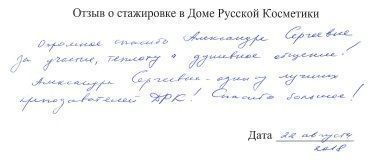 Отзыв о стажировке в Доме Русской Косметики
Огромное спасибо Александре Сергеевне
за участие, теплоту и душевное общение!
Александра Сергеевна - одна из лучших
преподавателей ДРК! Спасибо большое!
Дата 22 августа
2018